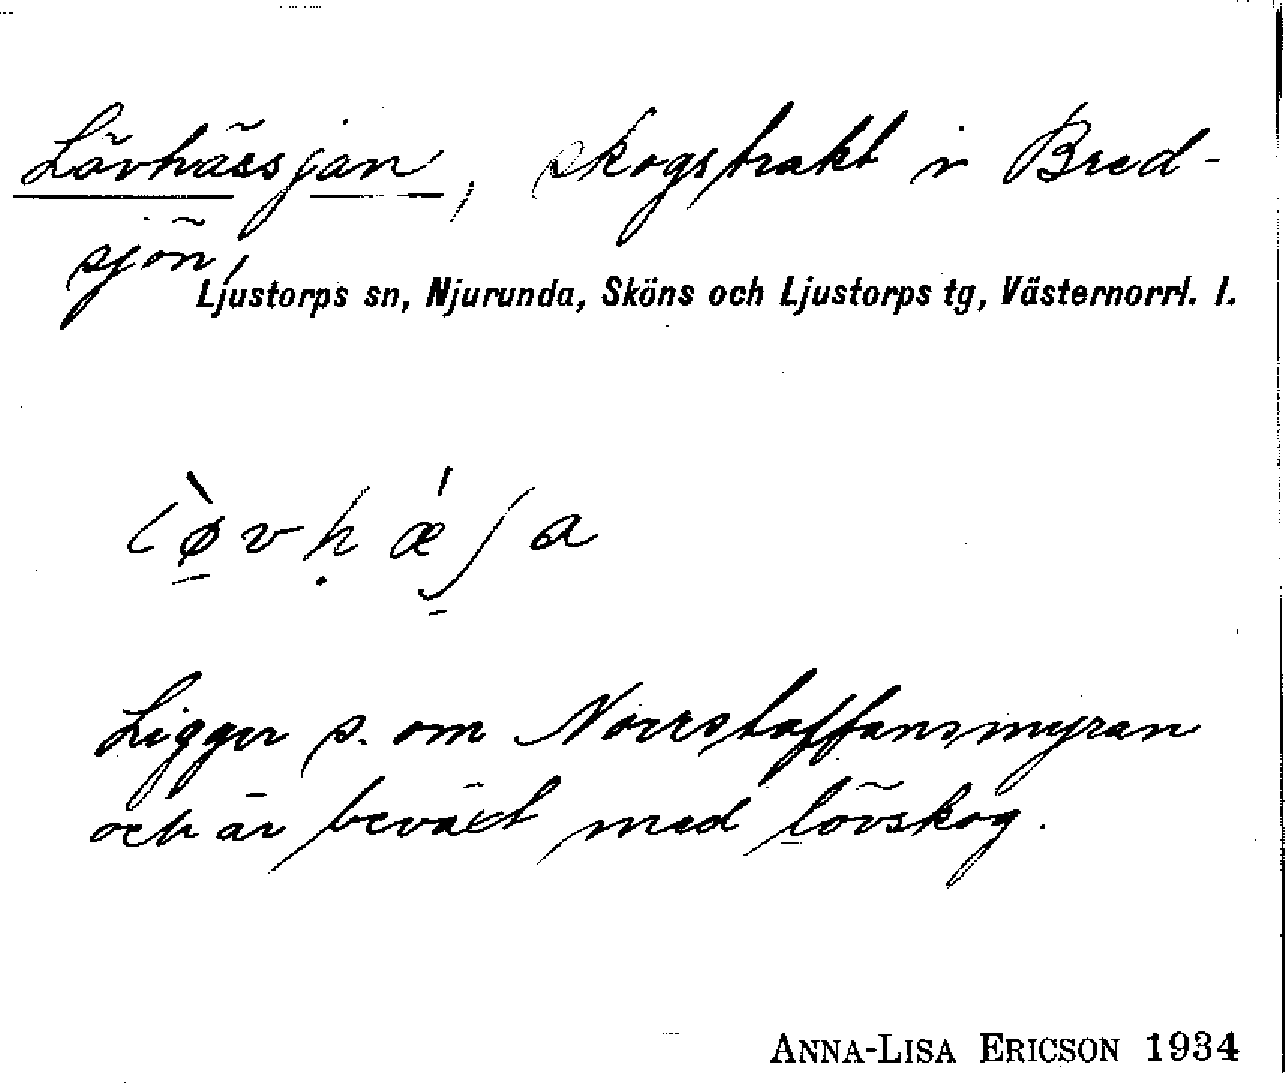 Lövhässjan, skogstrakt i Bred-
sjön,
Ljustorps sn, Njurunda, Sköns och Ljustorps tg, Västernorrl. l.
Ligger s. om Norrstaffansmyran
och är beväxt med lövskog.
ANNA-LISA ERICSON 1934